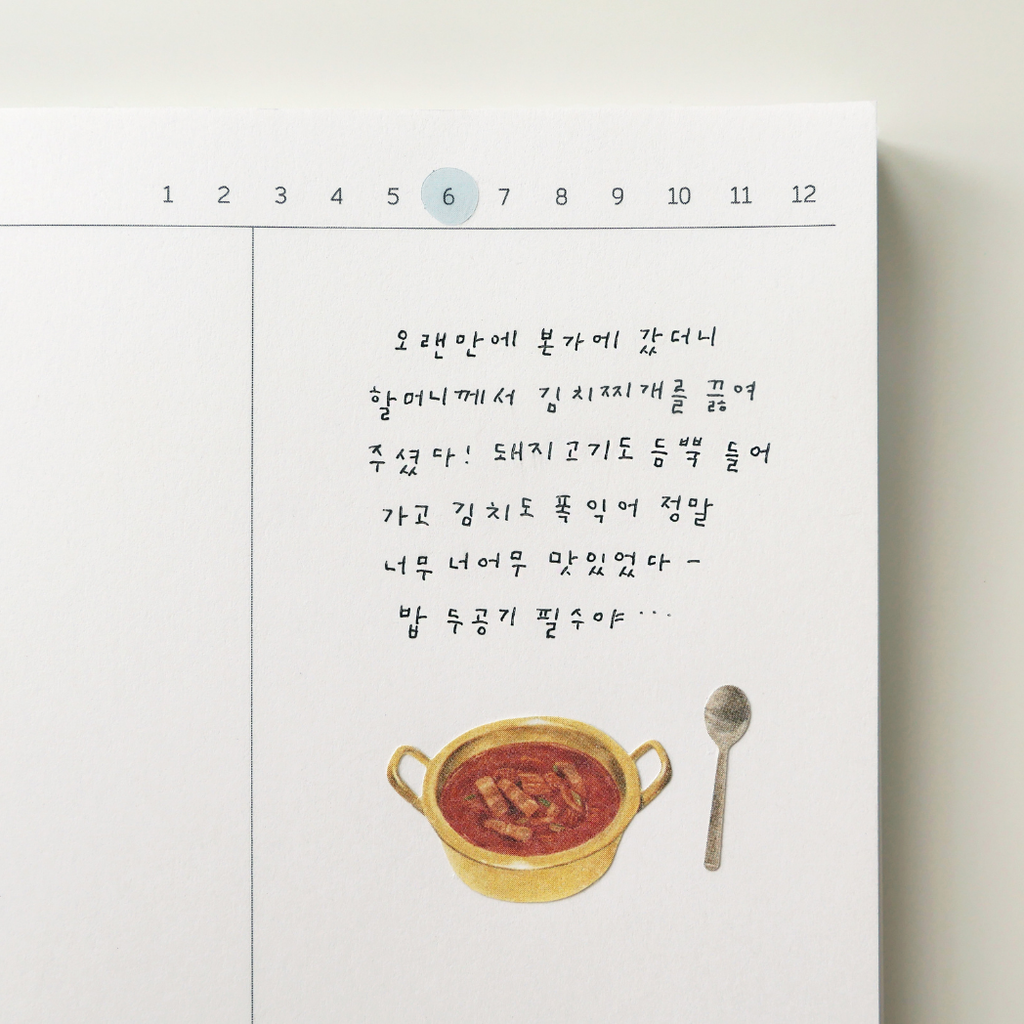 1 2 3 4 5 6 7 8 9 10 11 12
오랜만에 본가에 갔더니
할머니께서 김치찌개를 끓여
주셨다! 돼지고기도 듬뿍 들어
가고 김치도 푹 익어 정말
너무 너어무 맛있었다 -
밥 두공기 필수야...